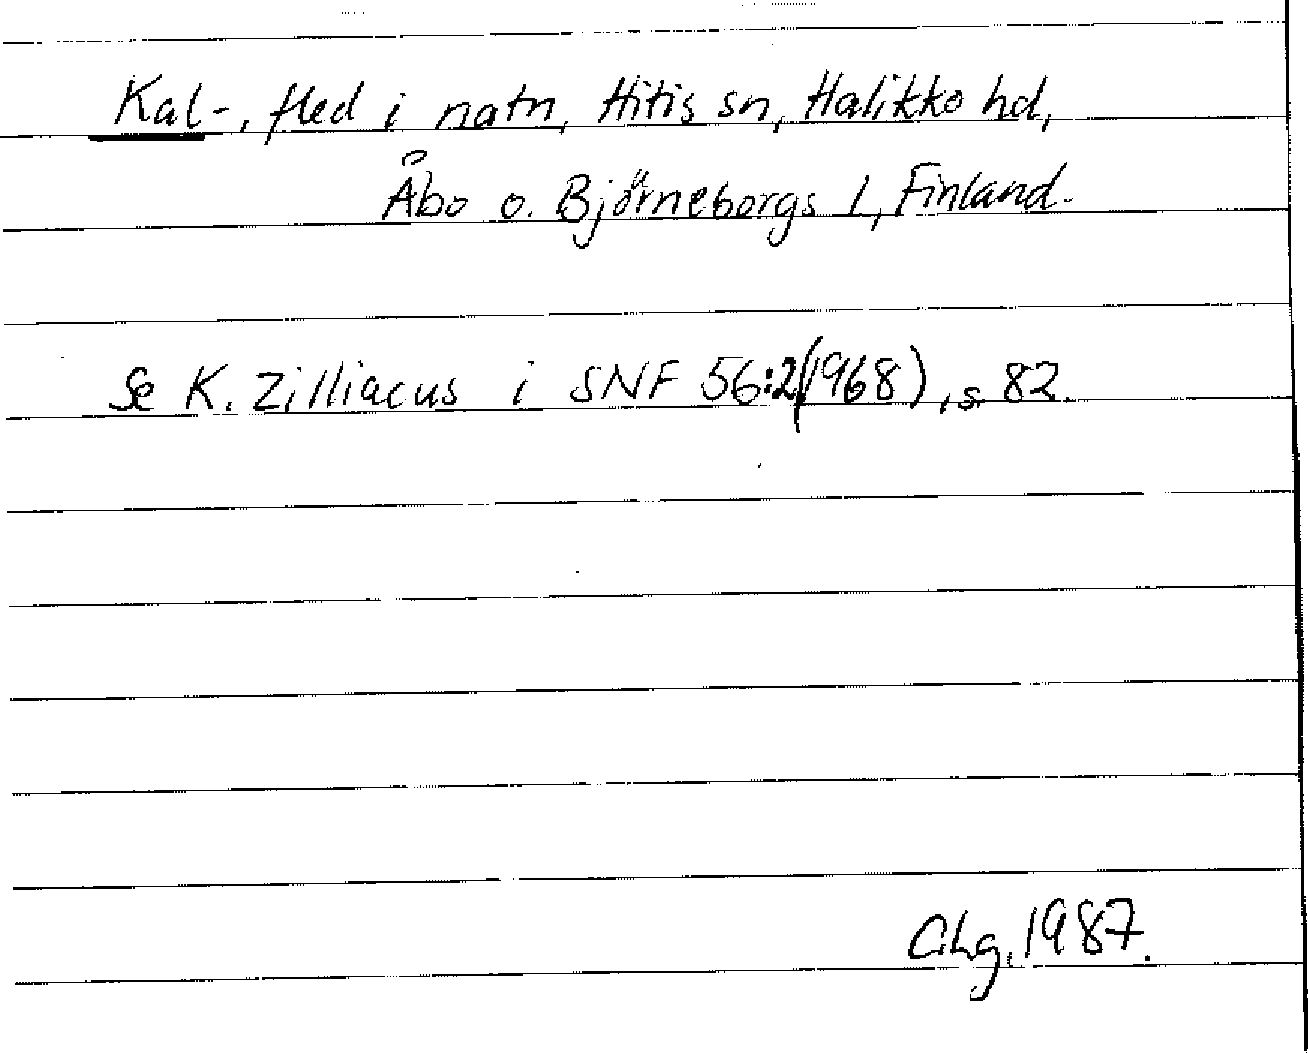 Kal-, fled i natn, Hitis sn, Halikko hd,
Åbo o. Björneborgs l, Finland.
Se K. Zilliacus i SNF 56:2(1968), s. 82.
CLg. 1987.